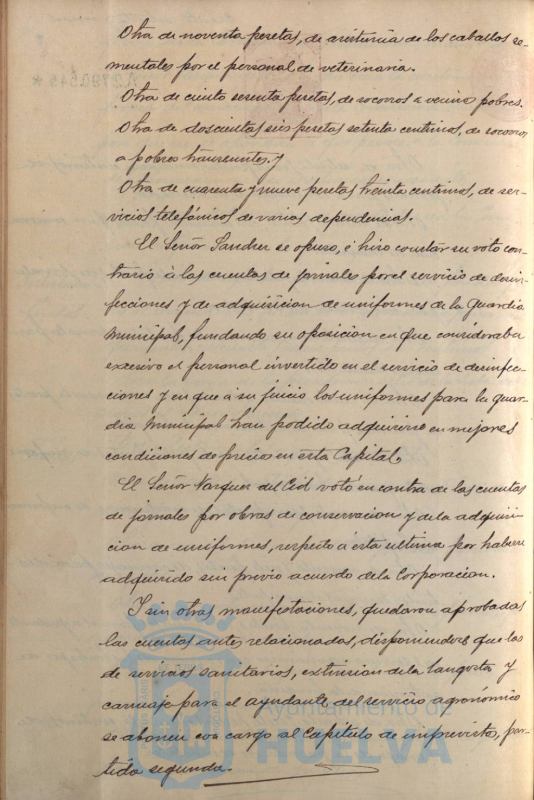 Otra de noventa pesetas, de asistencia de los caballos se-
mentales por el personal de veterinaria.
Otra de ciento sesenta pesetas, de socorros a vecinos pobres.
Otra de doscientas seis pesetas setenta centimos, de socorros
a pobres transeuntes. y
Otra de cuarenta y nueve pesetas treinta centimos, de ser-
vicios telefónicos de varias dependencias.
El Señor Sanchez se opuso, é hizo constar su voto con-
trario á las cuentas de jornales por el servicio de desin-
fecciones y de adquisicion de uniformes de la Guardia
Municipal, fundando su oposicion en que consideraba
excesivo el personal invertido en el servicio de desinfec-
ciones y en que a su juicio los uniformes para la guar-
dia Municipal han podido adquirirse en mejores
condiciones de precio en esta Capital.
El Señor Vazquez del Cid votó en contra de las cuentas
de jornales por obras de conservacion y de la adquisi-
cion de uniformes, respecto á esta ultima por haberse
adquirido sin previo acuerdo de la Corporacion.
I sin otras manifestaciones, quedaron aprobadas
las cuentas antes relacionadas, disponiendose que las
de servicios sanitarios, extincion de la langosta y
carruaje para el ayudante del servicio agronómico
se abonen con cargo al Capítulo de imprevistos, par-
tida segunda.
Ayuntamiento de
HUELVA